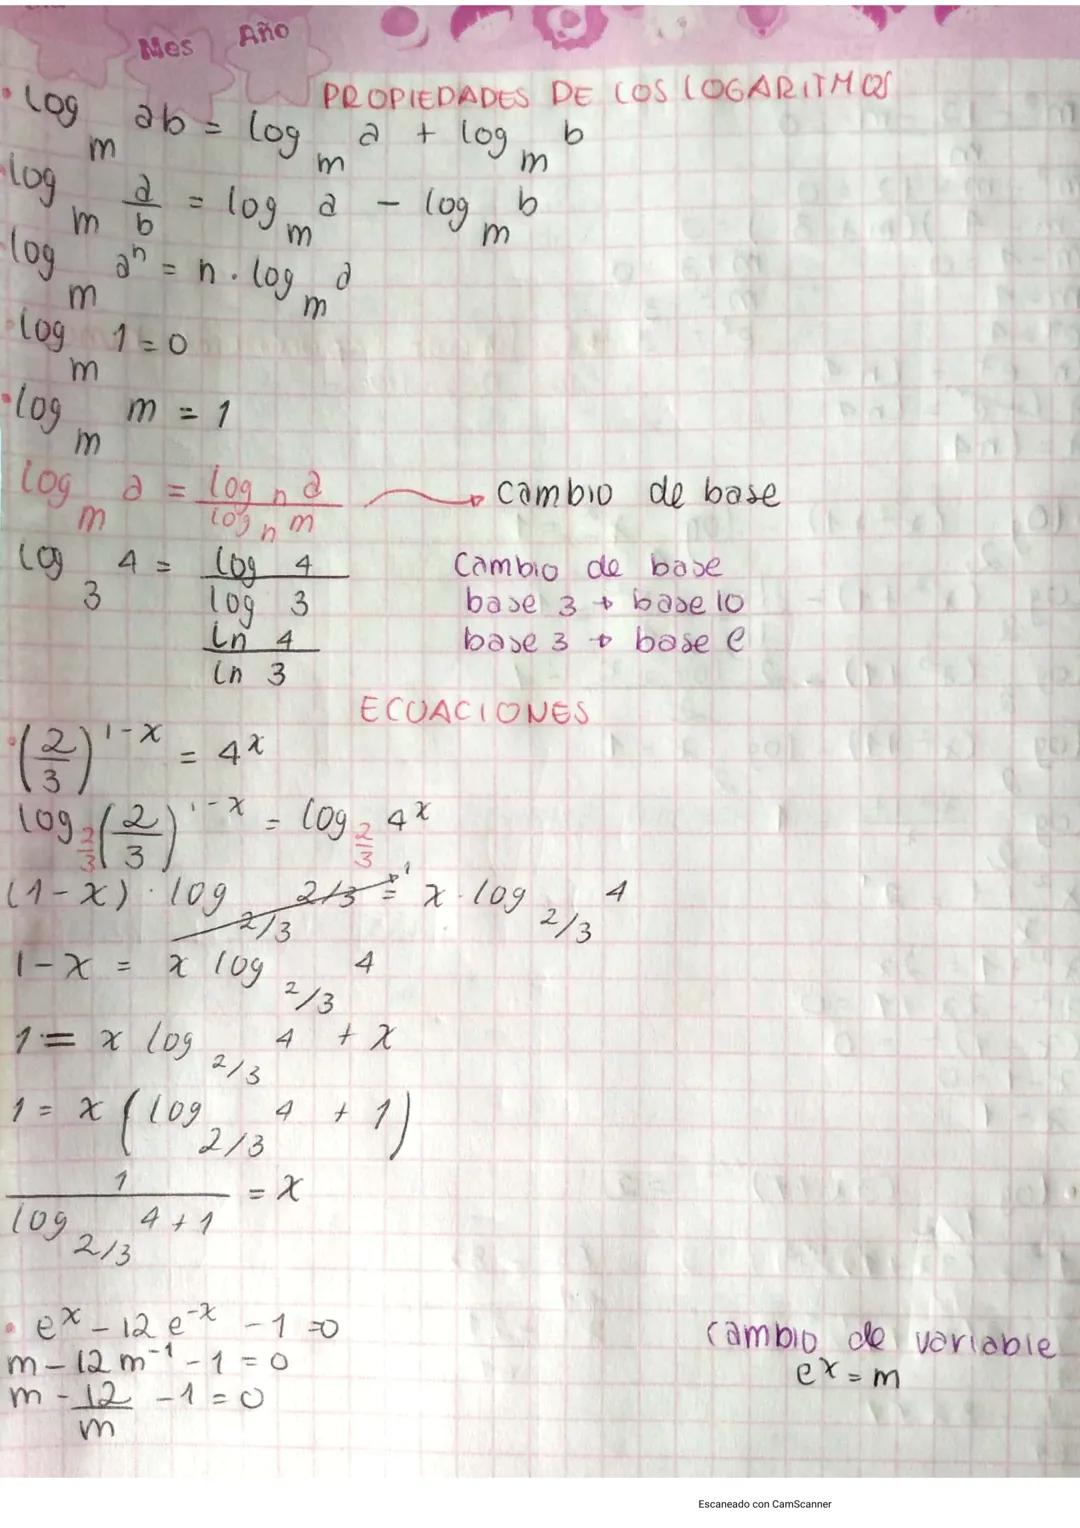 Mes Año
PROPIEDADES DE LOS LOGARITMOS
• log_m ab = log_m a + log_m b
log_m a/b = log_m a - log_m b
log_m a^n = n · log_m a
• log_m 1 = 0
• log_m m = 1
log_m a = log_n a / log_n m → cambio de base
log_3 4 = log 4 / log 3 Cambio de base
base 3 → base 10
ln 4 / ln 3 base 3 → base e
ECUACIONES
• (2/3)^(1-x) = 4^x
log_2/3 (2/3)^(1-x) = log_2/3 4^x
(1-x) · log_2/3 2/3 = x · log_2/3 4
1
1-x = x log_2/3 4
1 = x log_2/3 4 + x
1 = x (log_2/3 4 + 1)
1 / log_2/3 4 + 1 = x
• e^x - 12 e^-x - 1 = 0 cambio de variable
m - 12 m^-1 - 1 = 0 e^x = m
m - 12/m - 1 = 0
Escaneado con CamScanner